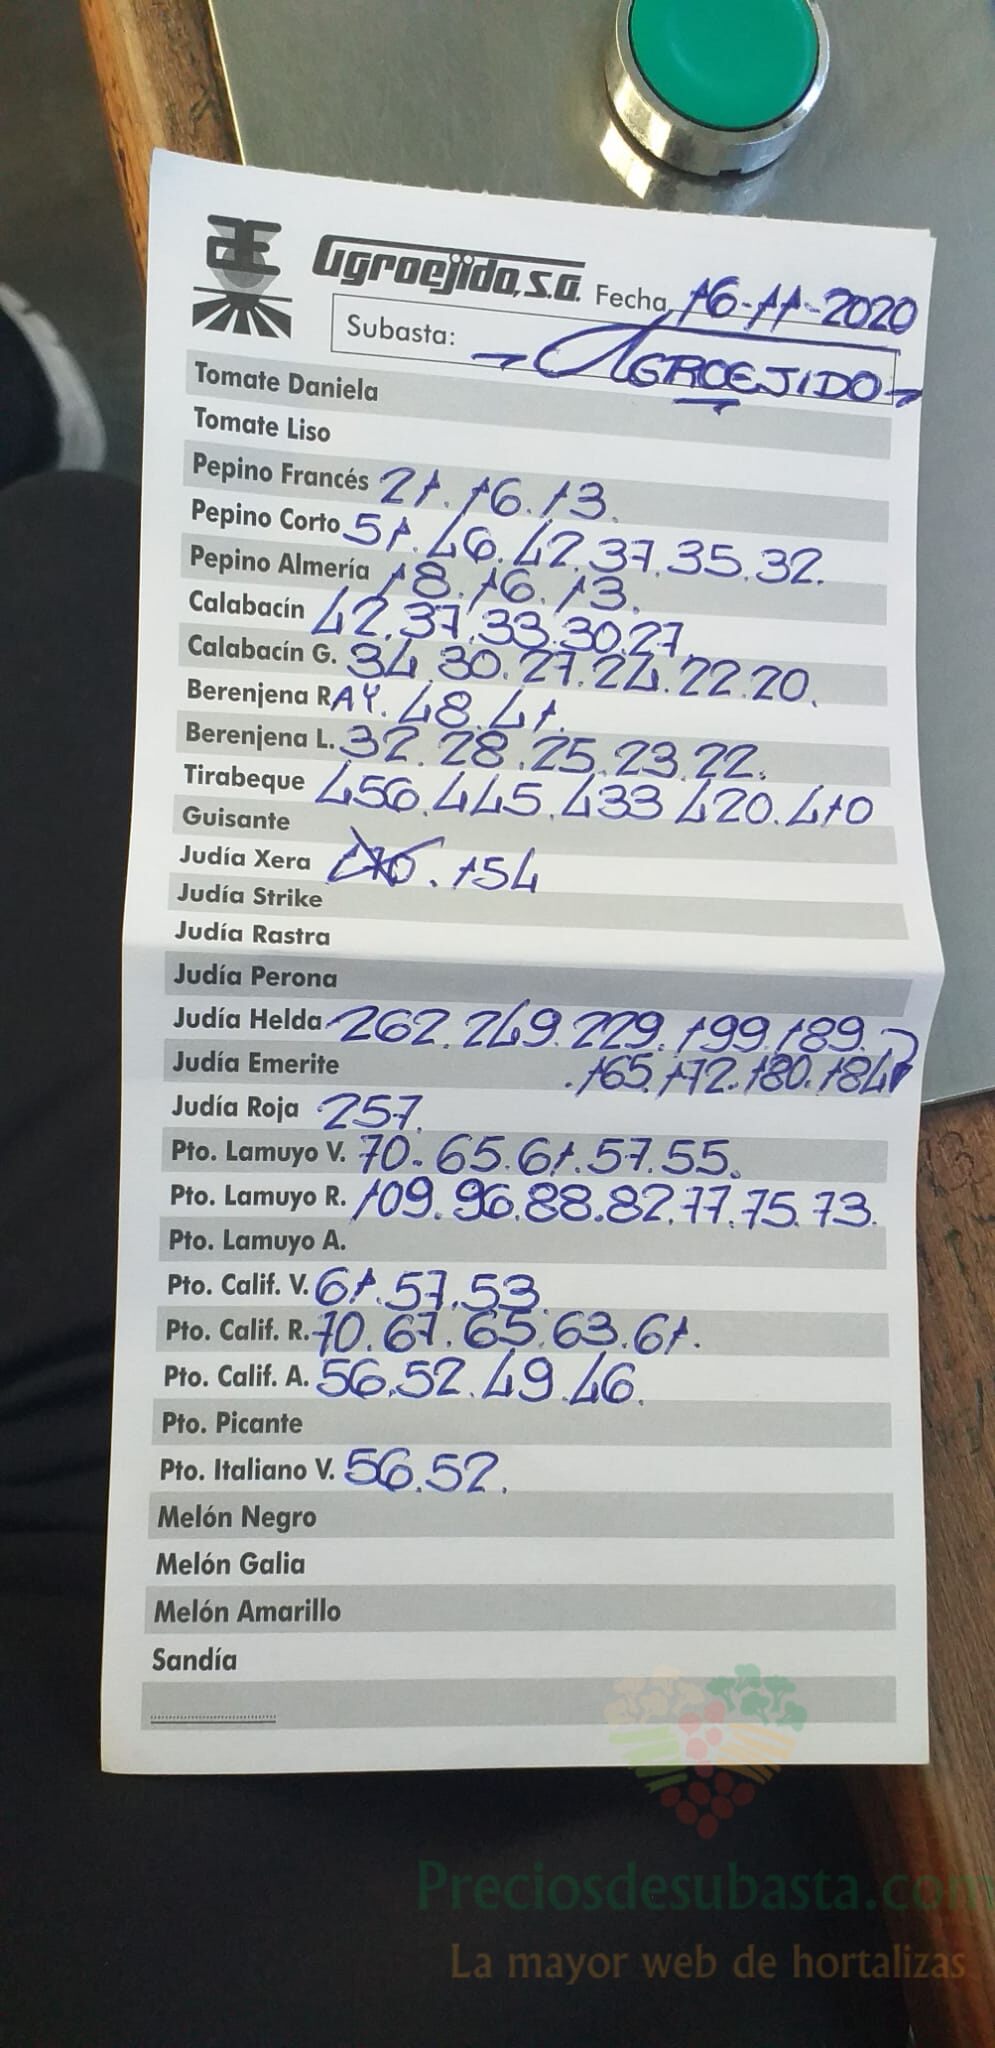 Agroejido, S.A. Fecha 16-11-2020
Subasta: - AGROEJIDO -
Tomate Daniela
Tomate Liso
Pepino Francés 21. 16. 13.
Pepino Corto 51. 46. 42. 37. 35. 32.
Pepino Almería 18. 16. 13.
Calabacín 42. 37. 33. 30. 27.
Calabacín G. 34. 30. 27. 24. 22. 20.
Berenjena RAY. 48. 41.
Berenjena L. 32. 28. 25. 23. 22.
Tirabeque 456. 445. 433 420. 410
Guisante
Judía Xera . 154
Judía Strike
Judía Rastra
Judía Perona
Judía Helda 262. 249. 229. 199. 189.
Judía Emerite . 165. 172. 180. 184
Judía Roja 257.
Pto. Lamuyo V. 70. 65. 61. 57. 55.
Pto. Lamuyo R. 109. 96. 88. 82. 77. 75. 73.
Pto. Lamuyo A.
Pto. Calif. V. 61. 57. 53.
Pto. Calif. R. 70. 67. 65. 63. 61.
Pto. Calif. A. 56. 52. 49. 46.
Pto. Picante
Pto. Italiano V. 56. 52.
Melón Negro
Melón Galia
Melón Amarillo
Sandía
Preciosdesubasta.com
La mayor web de hortalizas